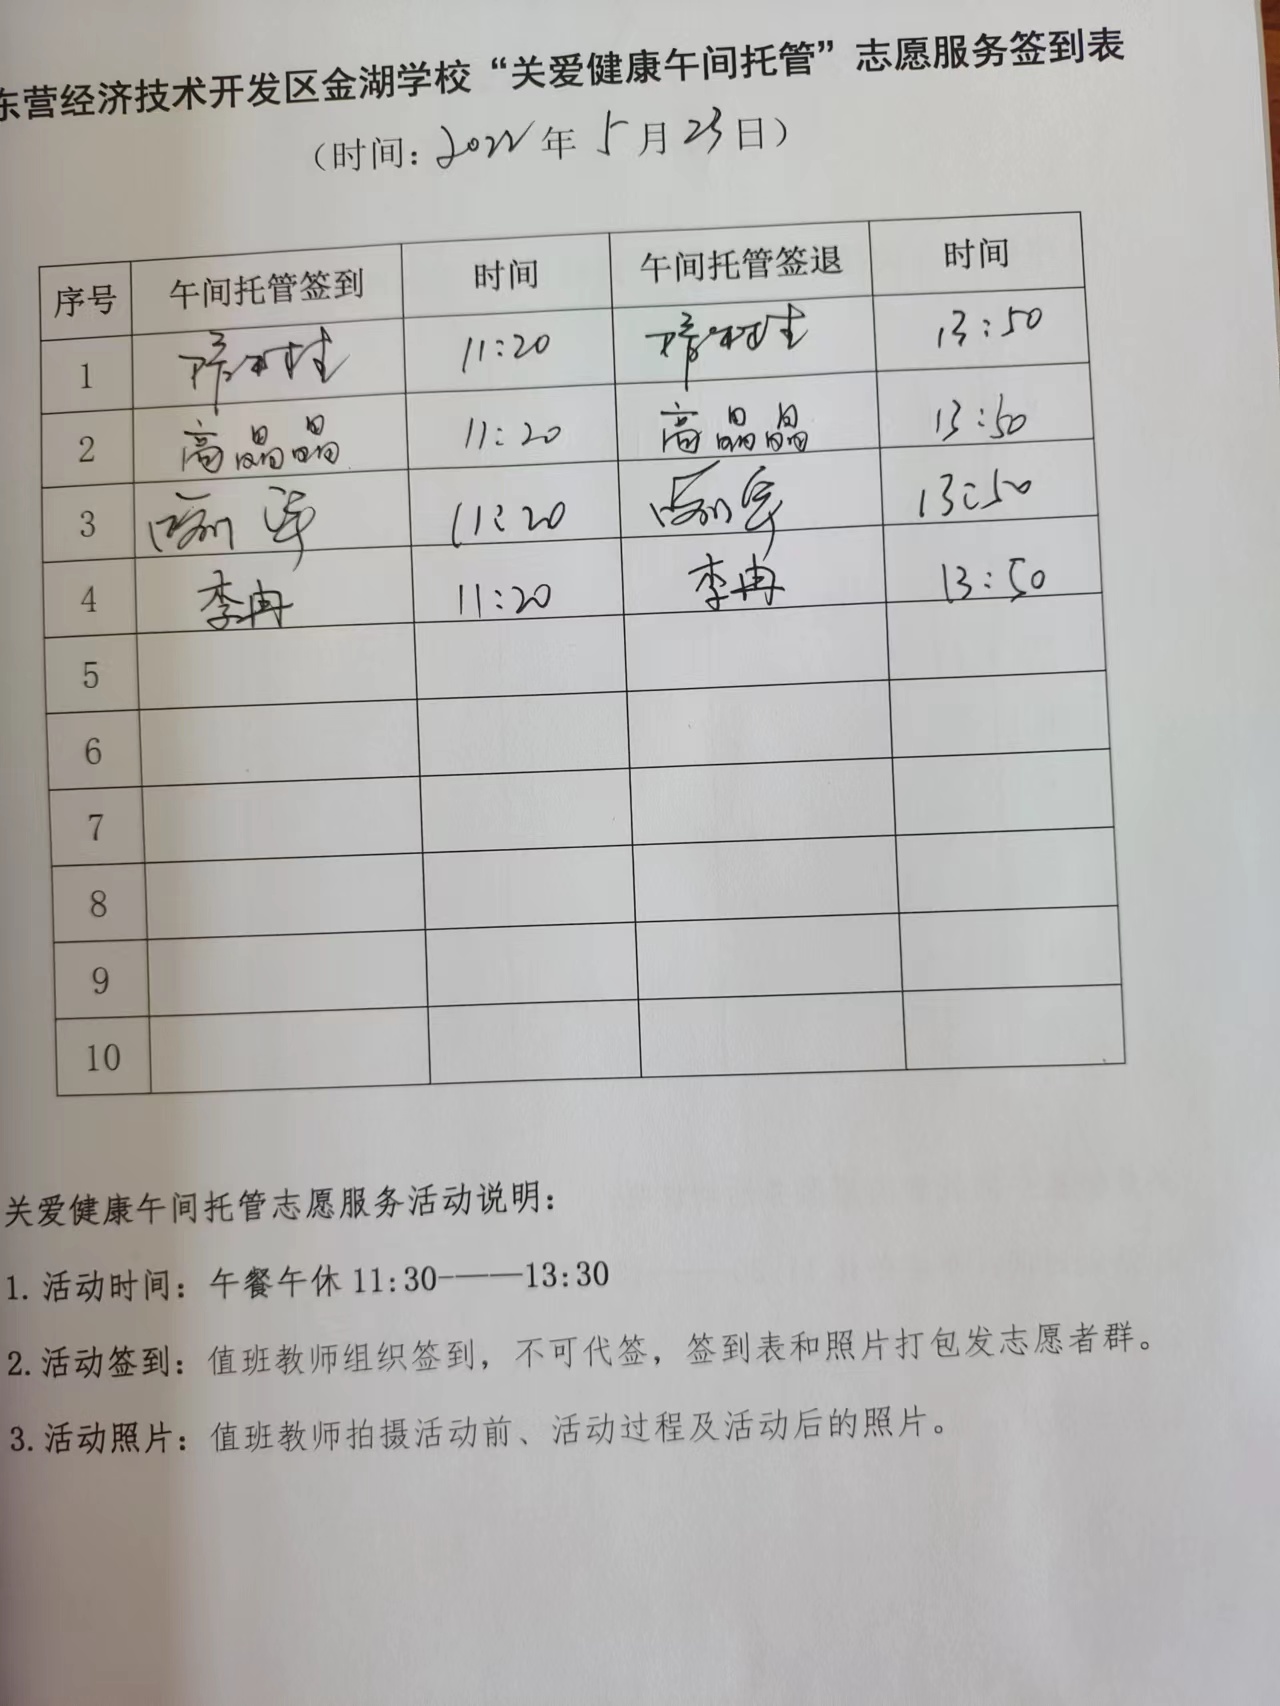 东营经济技术开发区金湖学校“关爱健康午间托管”志愿服务签到表
（时间：2022年 5月 23日）
序号 午间托管签到 时间 午间托管签退 时间
1 11:20 13:50
2 高晶晶 11:20 高晶晶 13:50
3 11:20 13:50
4 李冉 11:20 李冉 13:50
5
6
7
8
9
10
关爱健康午间托管志愿服务活动说明：
1.活动时间：午餐午休 11:30———13:30
2.活动签到：值班教师组织签到，不可代签，签到表和照片打包发志愿者群。
3.活动照片：值班教师拍摄活动前、活动过程及活动后的照片。